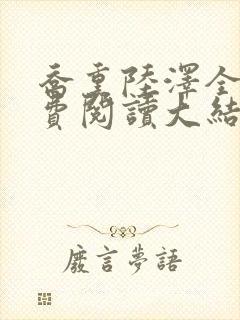 喬熏陸澤全
費閱讀大結
廢言夢語